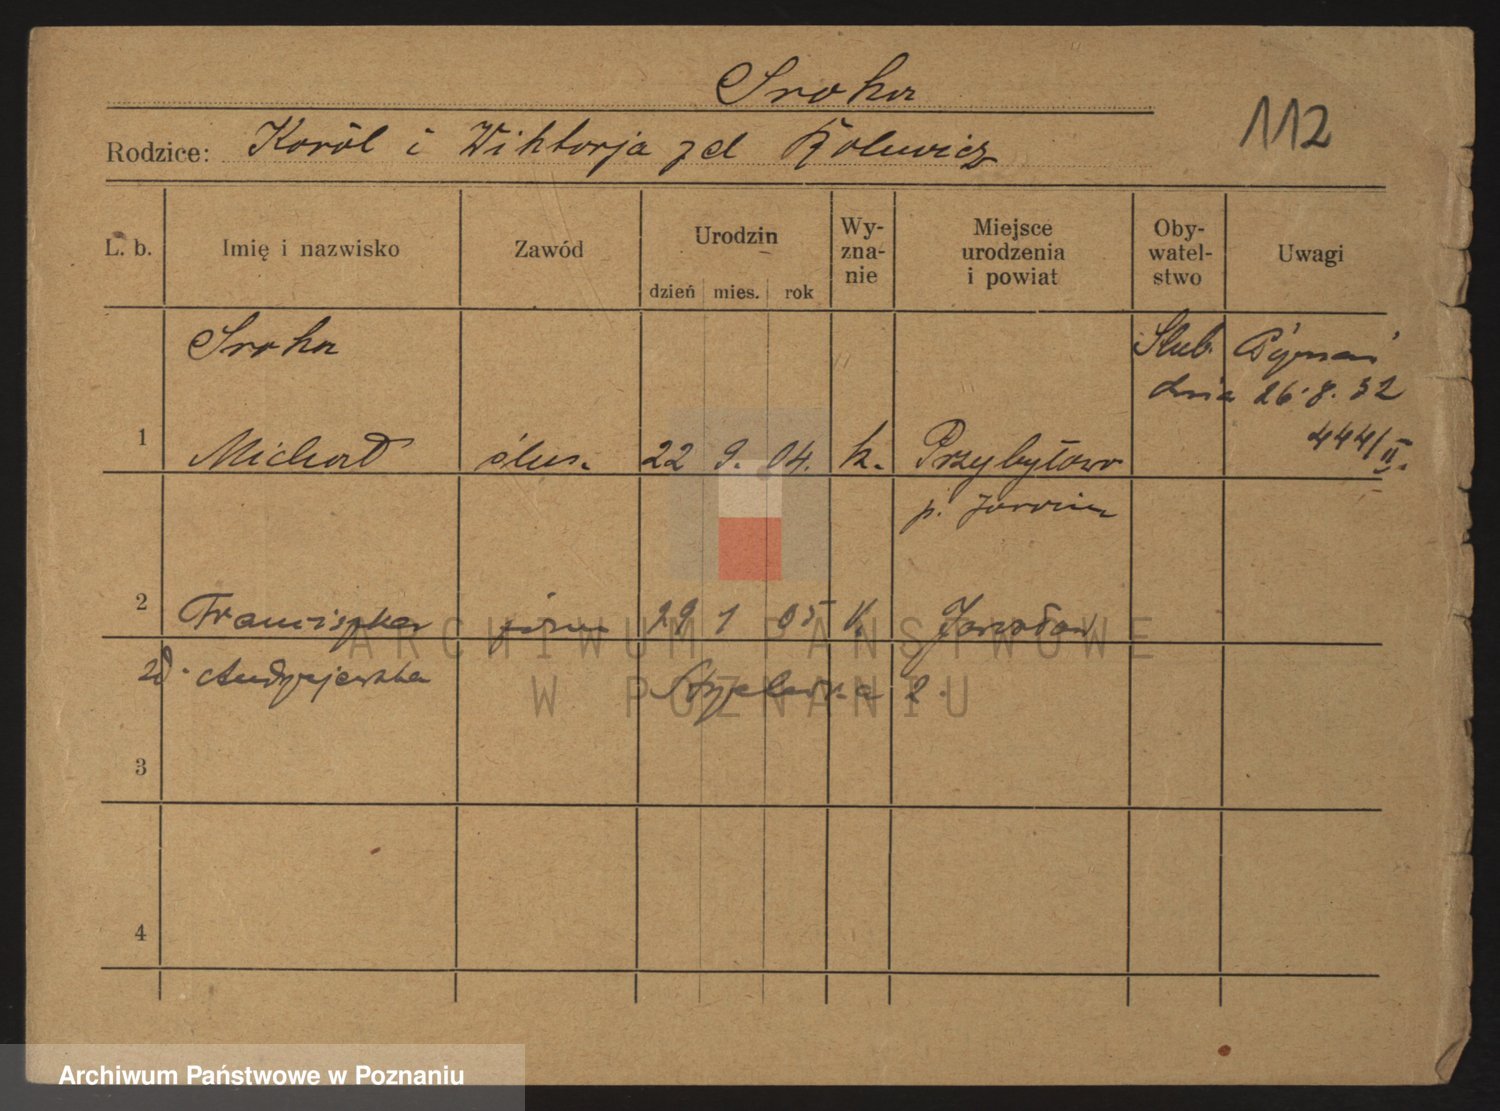 Sroka
112
Rodzice: Karol i Wiktorja zd
L. b. Imię i nazwisko Zawód Urodzin Wy-zna-nie Miejsce urodzenia i powiat Oby-watel-stwo Uwagi
dzień mies. rok
Sroka Ślub
dnia 26.8.32
444/II.
1 Michał ślus. 22 9. 04. k. Przybysław
p. Jarocin
2 Franciszka 29 1 05 k. Jarosław
zd. Andrzejewska 2.
3
4
ARCHIWUM PAŃSTWOWE
W POZNANIU
Archiwum Państwowe w Poznaniu